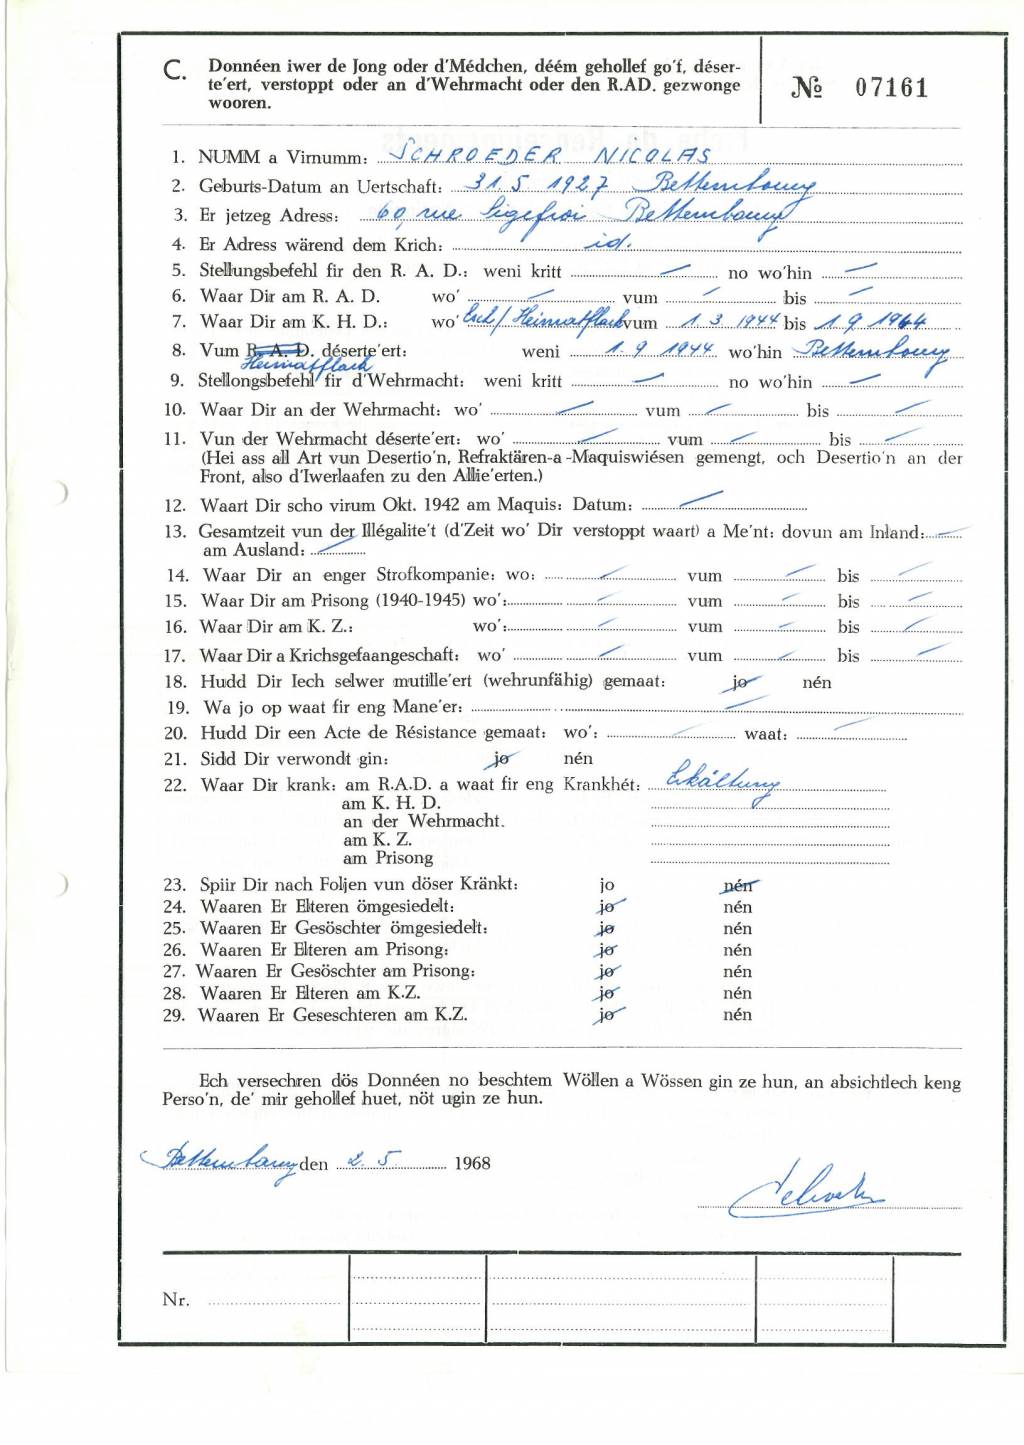 C. Donnéen iwer de Jong oder d'Médchen, déém gehollef go'f, déser-
te'ert, verstoppt oder an d'Wehrmacht oder den R.AD. gezwonge
wooren.
№ 07161
1. NUMM a Virnumm: SCHROEDER NICOLAS
2. Geburts-Datum an Uertschaft: 31.5 1927 Bettembourg
3. Er jetzeg Adress: 60, rue Sigefroi Bettembourg
4. Er Adress wärend dem Krich: id.
5. Stellungsbefehl fir den R. A. D.: weni kritt — no wo'hin —
6. Waar Dir am R. A. D. wo' — vum — bis —
7. Waar Dir am K. H. D.: wo' Esch/Heimatflack vum 1. 3. 1944 bis 1 9 1944
8. Vum R. A. D. déserte'ert: weni 1. 9 1944 wo'hin Bettembourg
Heimatflack
9. Stellongsbefehl fir d'Wehrmacht: weni kritt — no wo'hin —
10. Waar Dir an de Wehrmacht: wo' — vum — bis —
11. Vun der Wehrmacht déserte'ert: wo' — vum — bis —
(Hei ass all Art vun Desertio'n, Refraktären-a-Maquiswiésen gemengt, och Desertio'n an der
Front, also d'Iwerlaafen zu den Allie'erten.)
12. Waart Dir scho virum Okt. 1942 am Maquis: Datum: —
13. Gesamtzeit vun der Illégalite't (d'Zeit wo' Dir verstoppt waart) a Me'nt: dovun am Inland: —
am Ausland: —
14. Waar Dir an enger Strofkompanie: wo: — vum — bis —
15. Waar Dir am Prisong (1940-1945) wo': — vum — bis —
16. Waar Dir am K. Z.: wo': — vum — bis —
17. Waar Dir a Krichsgefaangeschaft: wo' — vum — bis —
18. Hudd Dir Iech selwer mutille'ert (wehrunfähig) gemaat: jo nén
19. Wa jo op waat fir eng Mane'er: —
20. Hudd Dir een Acte de Résistance gemaat: wo': — waat: —
21. Sidd Dir verwondt gin: jo nén
22. Waar Dir krank: am R.A.D. a waat fir eng Krankhét: Erkältung
am K. H. D.
an der Wehrmacht.
am K. Z.
am Prisong
23. Spiir Dir nach Foljen vun döser Kränkt: jo nén
24. Waaren Er Elteren ömgesiedelt: jo nén
25. Waaren Er Gesöschter ömgesiedelt: jo nén
26. Waaren Er Elteren am Prisong: jo nén
27. Waaren Er Gesöschter am Prisong: jo nén
28. Waaren Er Elteren am K.Z. jo nén
29. Waaren Er Geseschteren am K.Z. jo nén
Ech versechren dös Donnéen no beschtem Wöllen a Wössen gin ze hun, an absichtlech keng
Perso'n, de' mir gehollef huet, nöt ugin ze hun.
Bettembourg den 2. 5. 1968
Nr.